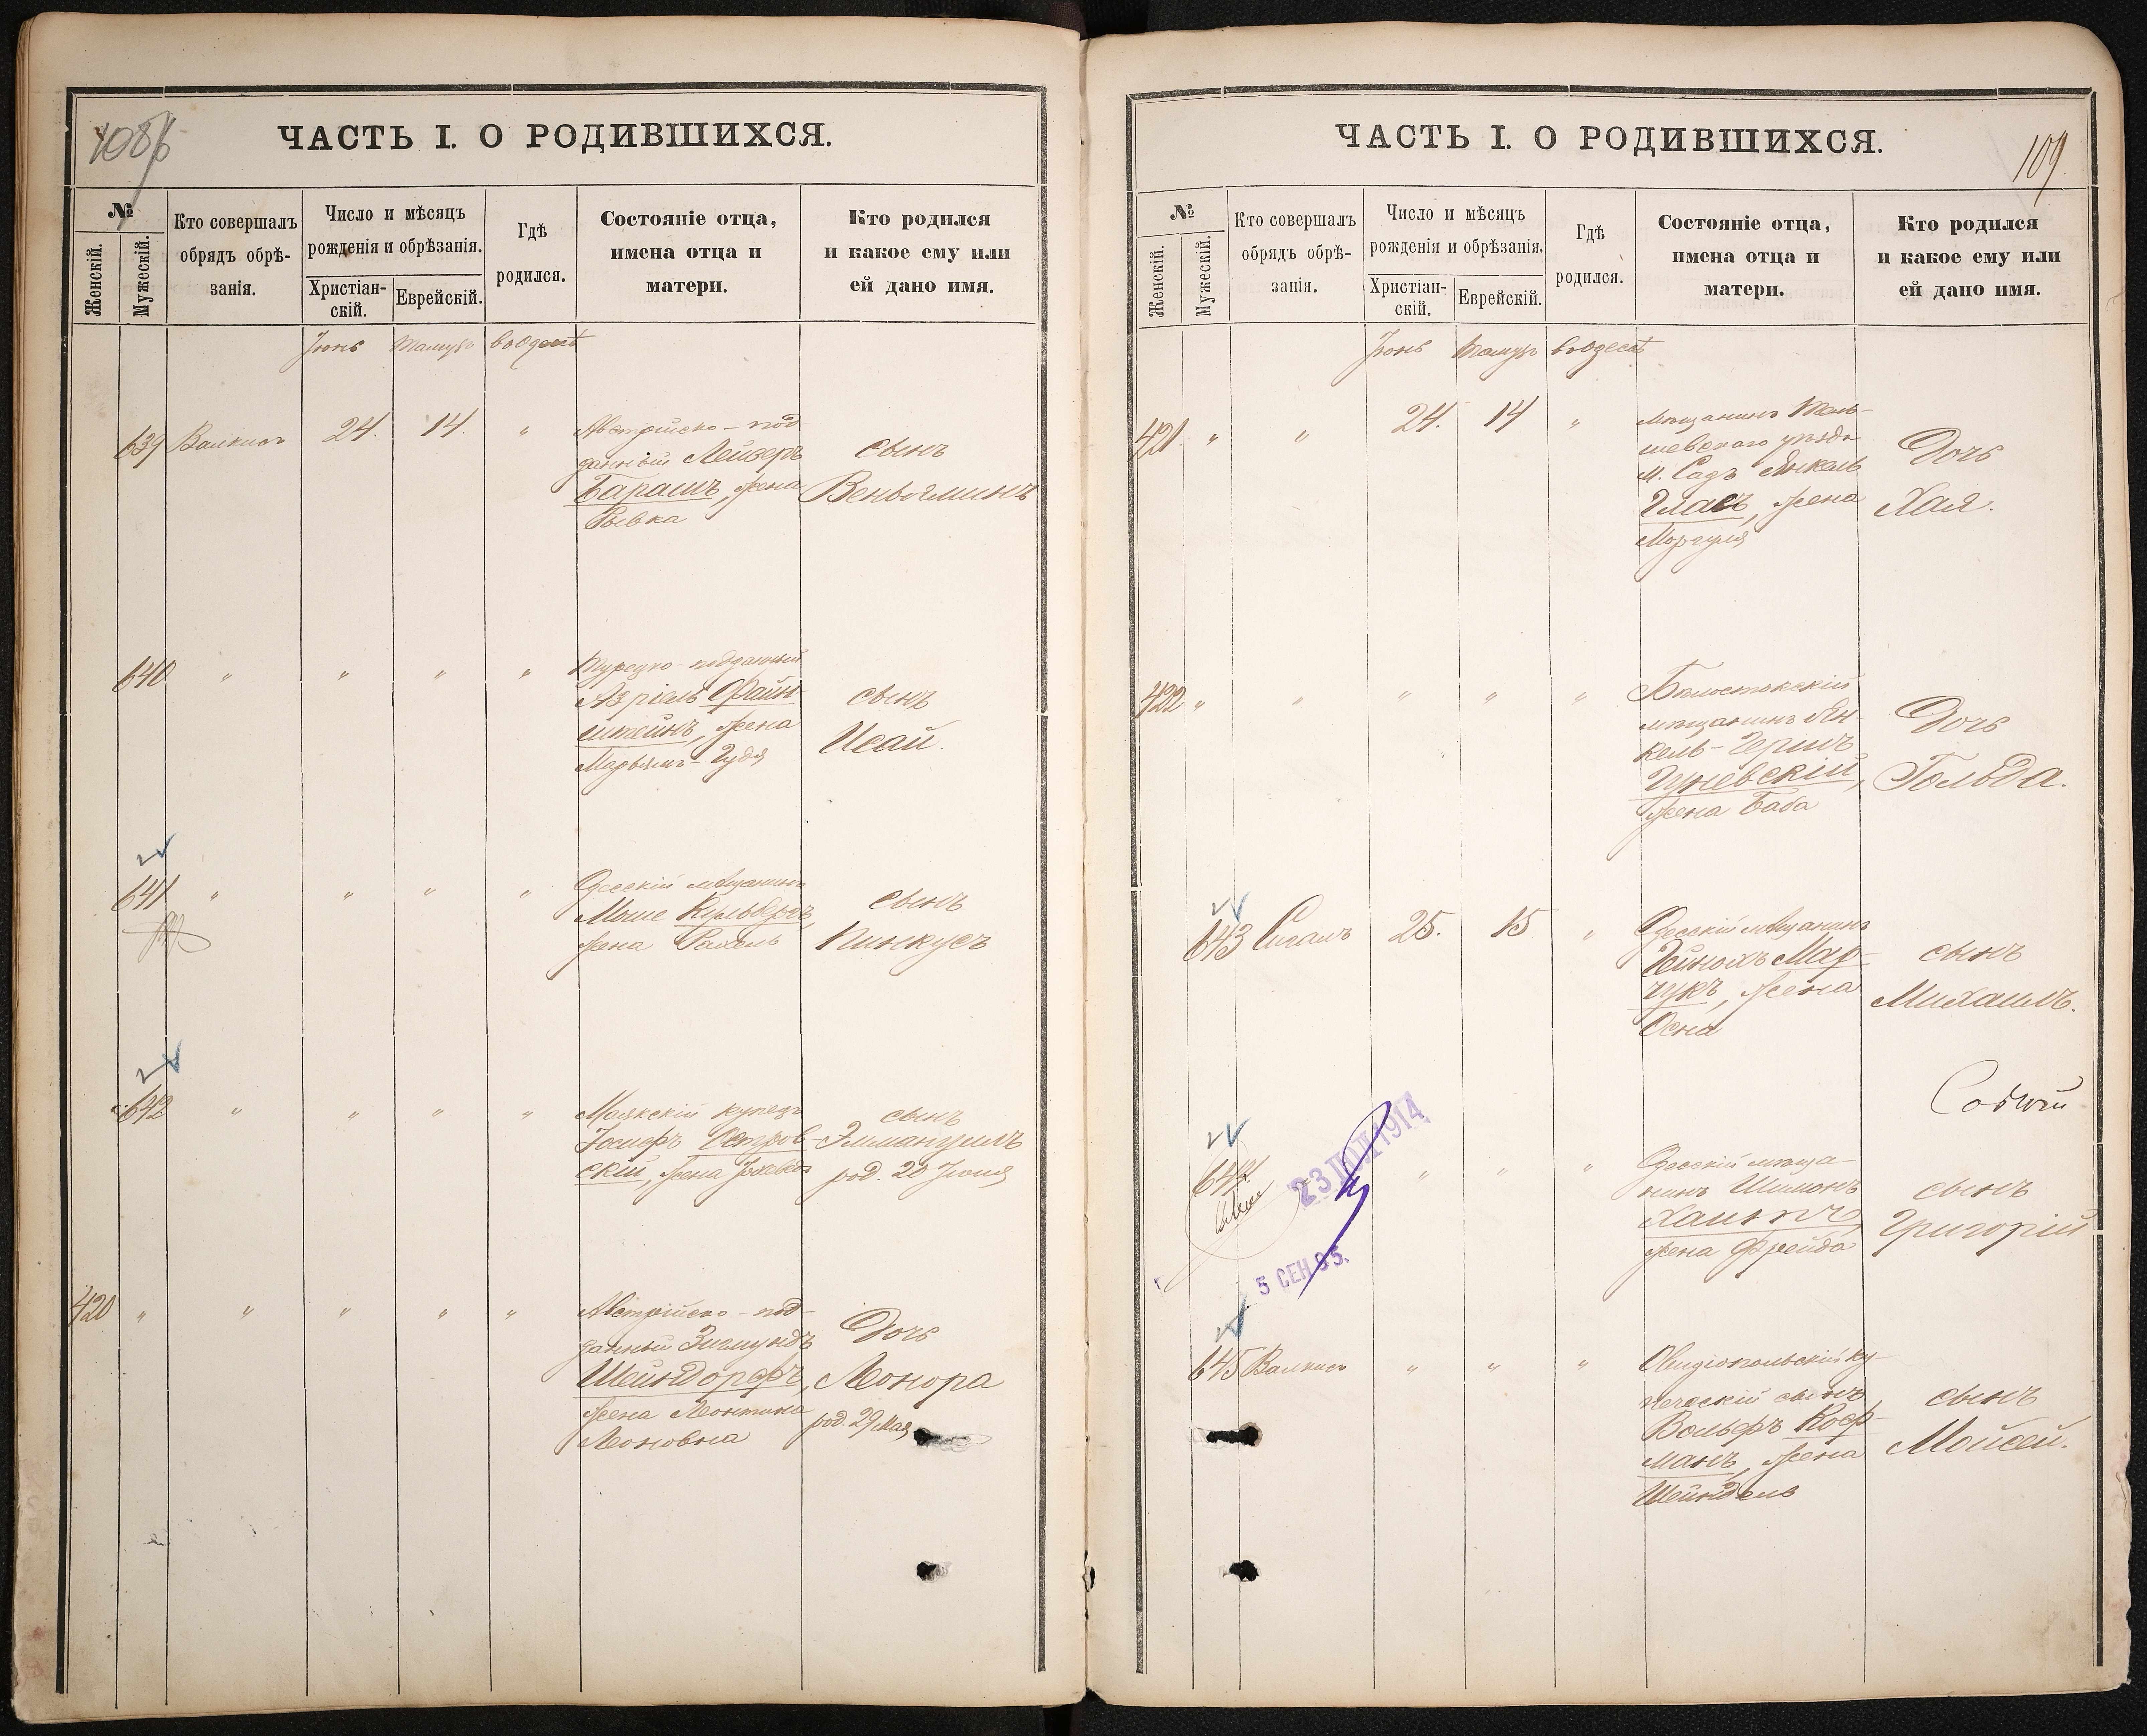 108
ЧАСТЬ I. О РОДИВШИХСЯ.
№
Женскій.
Мужескій.
Кто совершалъ
обрядъ обрѣ-
занія.
Число и мѣсяцъ
рожденія и обрѣзанія.
Христіан-
скій.
Еврейскій.
Гдѣ
родился.
Состояніе отца,
имена отца и
матери.
Кто родился
и какое ему или
ей дано имя.
Іюнь Тамузъ
639 Валкисъ 24. 14. "
Австрійско-под
данный Лейзеръ
Барашъ, жена
Рывка
сынъ
Веньяминъ
640 " " " "
Турецко-подданный
Азріель Файн-
штейнъ, жена
Марьямъ-Гудя
сынъ
Исай.
641 " " " "
Одесскій мѣщанинъ
Моше
жена Рахель
сынъ
Пинкусъ
642 " " " "
Маякскій купецъ
Іосифъ Остров-
скій, жена
сынъ
Эммануилъ
род. 20 Іюня
420 " " " " "
Австрійско-под-
данный Зигмундъ
Шейндорфъ,
жена Леонтина
Леоновна
Дочь
Леонора
род. 29 Мая
109.
ЧАСТЬ I. О РОДИВШИХСЯ.
№
Женскій.
Мужескій.
Кто совершалъ
обрядъ обрѣ-
занія.
Число и мѣсяцъ
рожденія и обрѣзанія.
Христіан-
скій.
Еврейскій.
Гдѣ
родился.
Состояніе отца,
имена отца и
матери.
Кто родился
и какое ему или
ей дано имя.
Іюнь Тамузъ въ Одессѣ
421. " " 24. 14 "
Мѣщанинъ Тель-
шевскаго уѣзда
м. Садъ Янкель
Гласъ, жена
Моргуля
Дочь
Хая.
422 " " " " "
Бѣлостокскій
мѣщанинъ Ян-
кель-Гершъ
жена Баба
Дочь
Гольда.
643 Сигалъ 25. 15 "
Одесскій мѣщанинъ
Гейнохъ Мар-
чукъ, жена
Осна
сынъ
Михаилъ.
644 " " "
23 1914
5 СЕН 95.
Одесскій мѣща-
нинъ Шимонъ
жена Фрейда
сынъ
Григорій
645 Валкисъ " " "
Овидіопольскій ку-
печескій сынъ
Вольфъ Коф-
манъ, жена
Шейндель
сынъ
Мойсей.